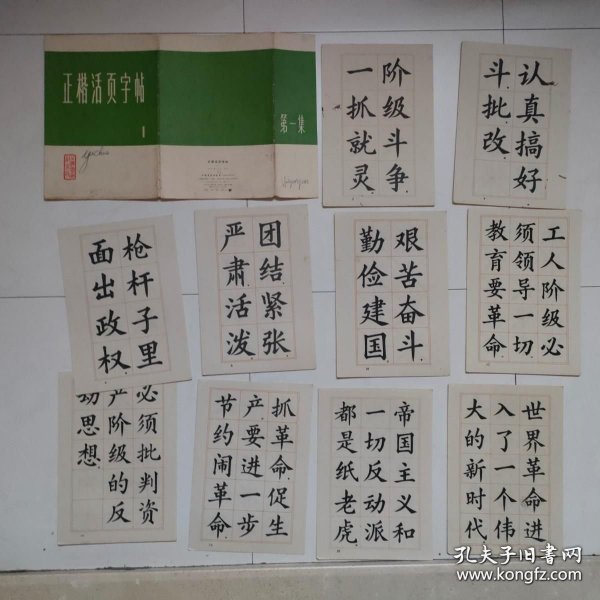 正楷活页字帖
1
第一集
正楷活页字帖
阶级斗争
一抓就灵
认真搞好
斗批改
枪杆子里
面出政权
团结紧张
严肃活泼
艰苦奋斗
勤俭建国
工人阶级必
须领导一切
教育要革命
必须批判资
产阶级的反
动思想
抓革命促生
产要进一步
节约闹革命
帝国主义和
一切反动派
都是纸老虎
世界革命进
入了一个伟
大的新时代
孔夫子旧书网
www.kongfz.com